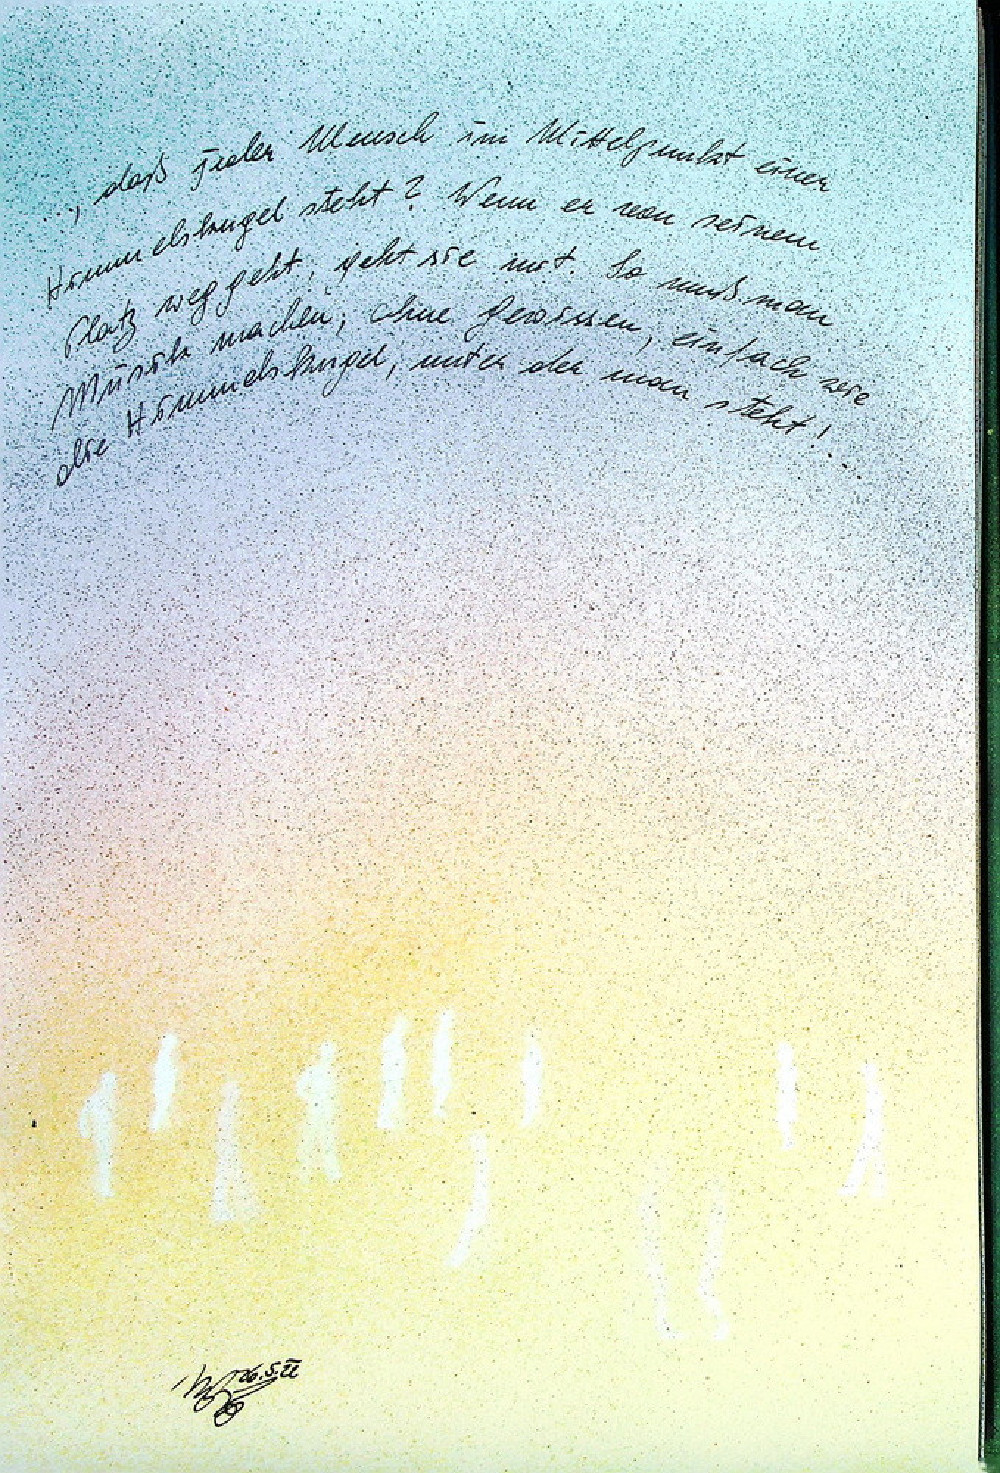 ..., daß jeder Mensch im Mittelpunkt einer
Himmelskugel steht? Wenn er von seinem
Platz weggeht, geht sie mit. So muß man
Musik machen, ohne Gewissen, einfach wie
die Himmelskugel, unter der man steht!...
26.5.